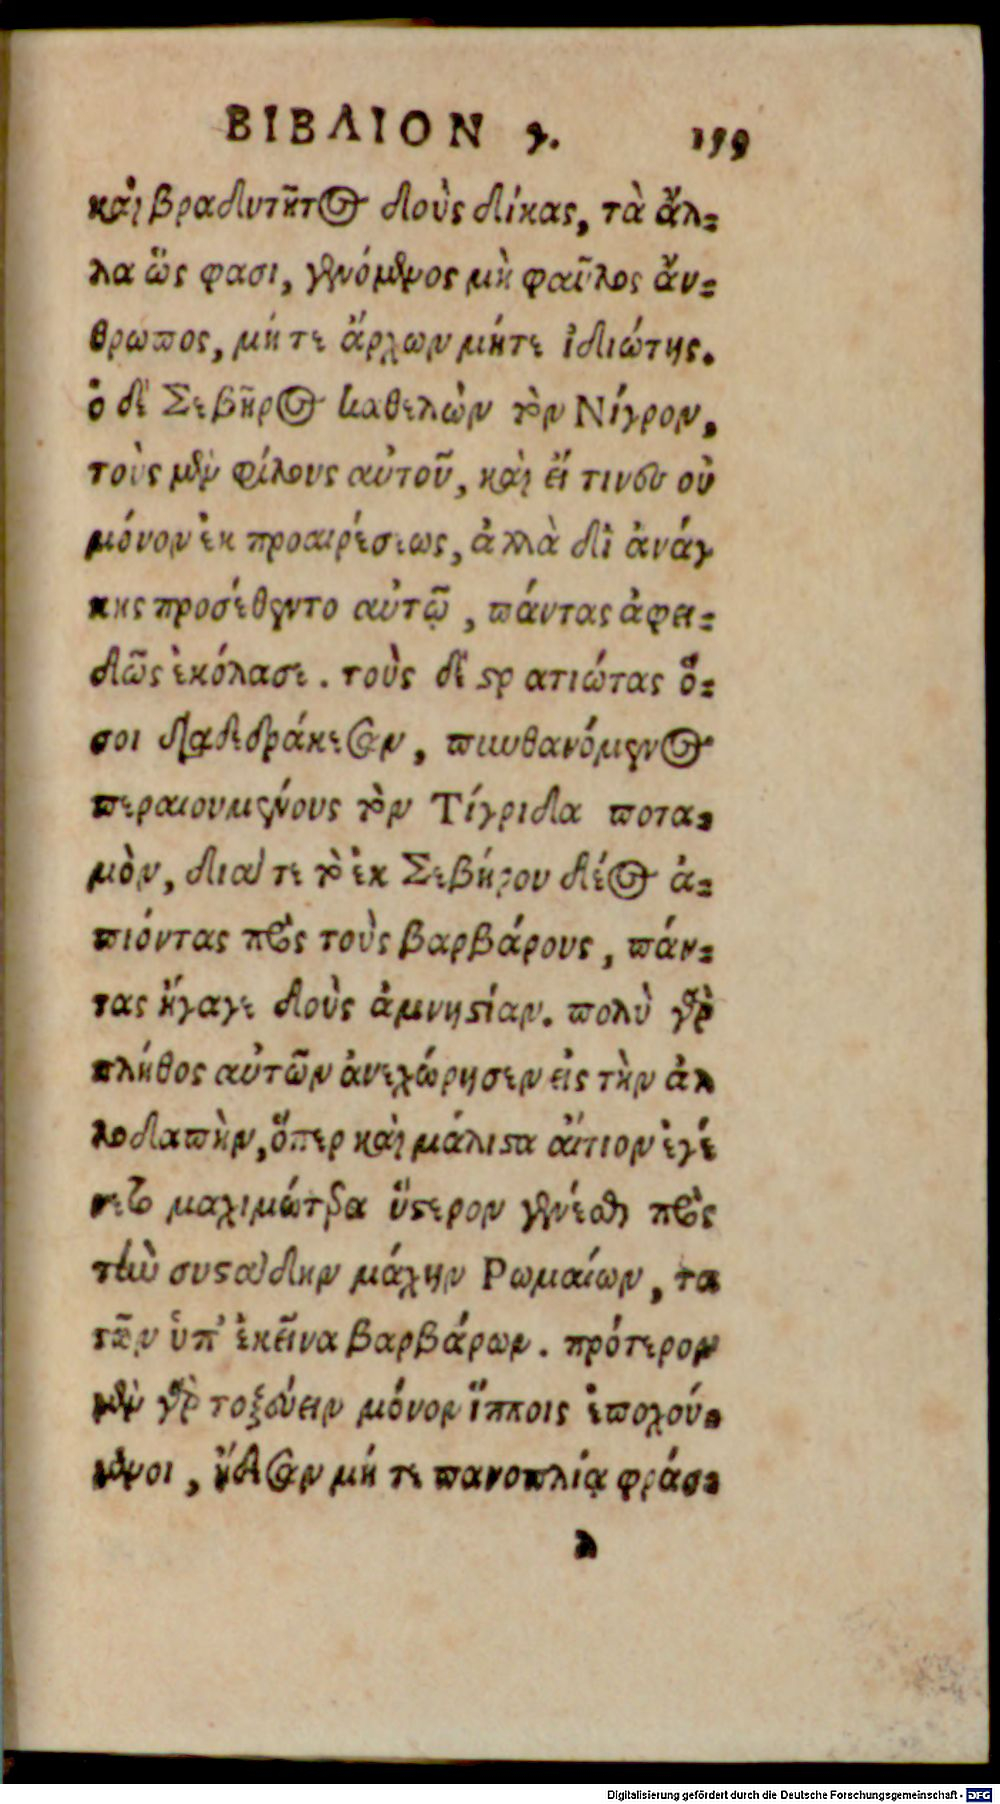 ΒΙΒΛΙΟΝ γ. 199
καὶ βραδυτῆτος δοὺς δίκας, τὰ ἄλ-
λα ὥς φασι, γενόμενος μὴ φαῦλος ἄν-
θρωπος, μήτε ἄρχων μήτε ἰδιώτης.
ὁ δὲ Σεβῆρος καθελὼν τὸν Νίγρον,
τοὺς μὲν φίλους αὐτοῦ, καὶ εἴ τινες οὐ
μόνον ἐκ προαιρέσεως, ἀλλὰ δι ἀνάγ
κης προσέθεντο αὐτῷ, πάντας ἀφει-
δῶς ἐκόλασε. τοὺς δὲ στρατιώτας ὅ-
σοι διαδεδράκεσαν, πυνθανόμενος
περαιουμένους τὸν Τίγριδα ποτα-
μὸν, διά τε τὸ ἐκ Σεβήρου δέος ἀ-
πιόντας πρὸς τοὺς βαρβάρους, πάν-
τας ἤγαγε δοὺς ἀμνηστίαν. πολὺ γὰρ
πλῆθος αὐτῶν ἀνεχώρησεν εἰς τὴν ἀλ
λοδαπὴν, ὅπερ καὶ μάλιστα αἴτιον ἐγέ
νετο μαχιμώτερα ὕστερον γενέσθαι πρὸς
τὴν συστάδην μάχην Ρωμαίων, τα
τῶν ὑπ' ἐκεῖνα βαρβάρων. πρότερον
μὲν γὰρ τοξεύειν μόνον ἵπποις ἐποχού-
μενοι, ᾔδεσαν μή τε πανοπλίᾳ φράσ-